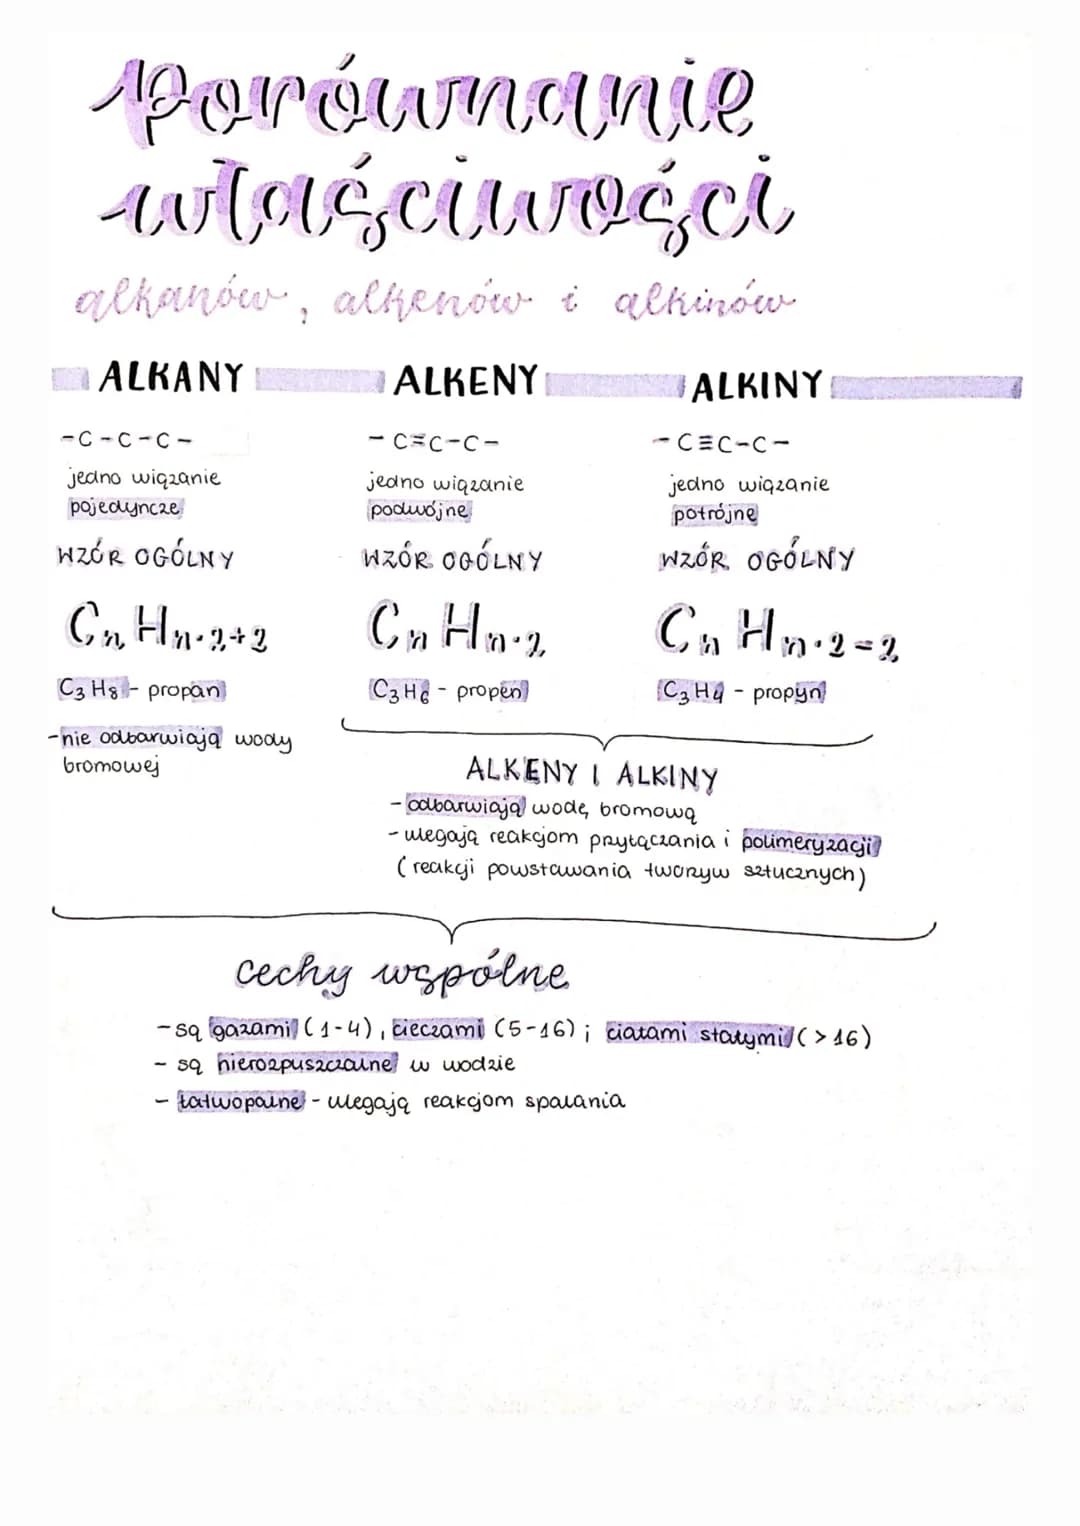 Porównanie
właściwości
alkanów, alkenów i alkinów
ALKANY ALKENY ALKINY
-C-C-C-
jedno wiązanie
pojedyncze
WZÓR OGÓLNY
CnHn·2+2
C3H8 - propan
-nie odbarwiają wody
bromowej
-C=C-C-
jedno wiązanie
podwójne
WZÓR OGÓLNY
CnHn·2
C3H6 - propen
-C≡C-C-
jedno wiązanie
potrójne
WZÓR OGÓLNY
CnHn·2-2
C3H4 - propyn
ALKENY I ALKINY
-odbarwiają wodę bromową
-ulegają reakcjom przyłączania i polimeryzacji
(reakcji powstawania tworzyw sztucznych)
cechy wspólne
-są gazami (1-4), cieczami (5-16) i ciałami stałymi (>16)
- są nierozpuszczalne w wodzie
- łatwopalne - ulegają reakcjom spalania